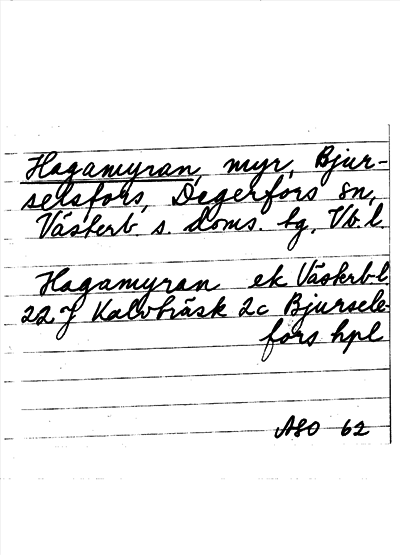 Hagamyran, myr, Bjur-
selsfors, Degerfors sn,
Västerb. s. doms. tg, Vb. l.
Hagamyran ek Västerb-l
22 J Kalvträsk 2c Bjursele-
fors hpl
ASO 62